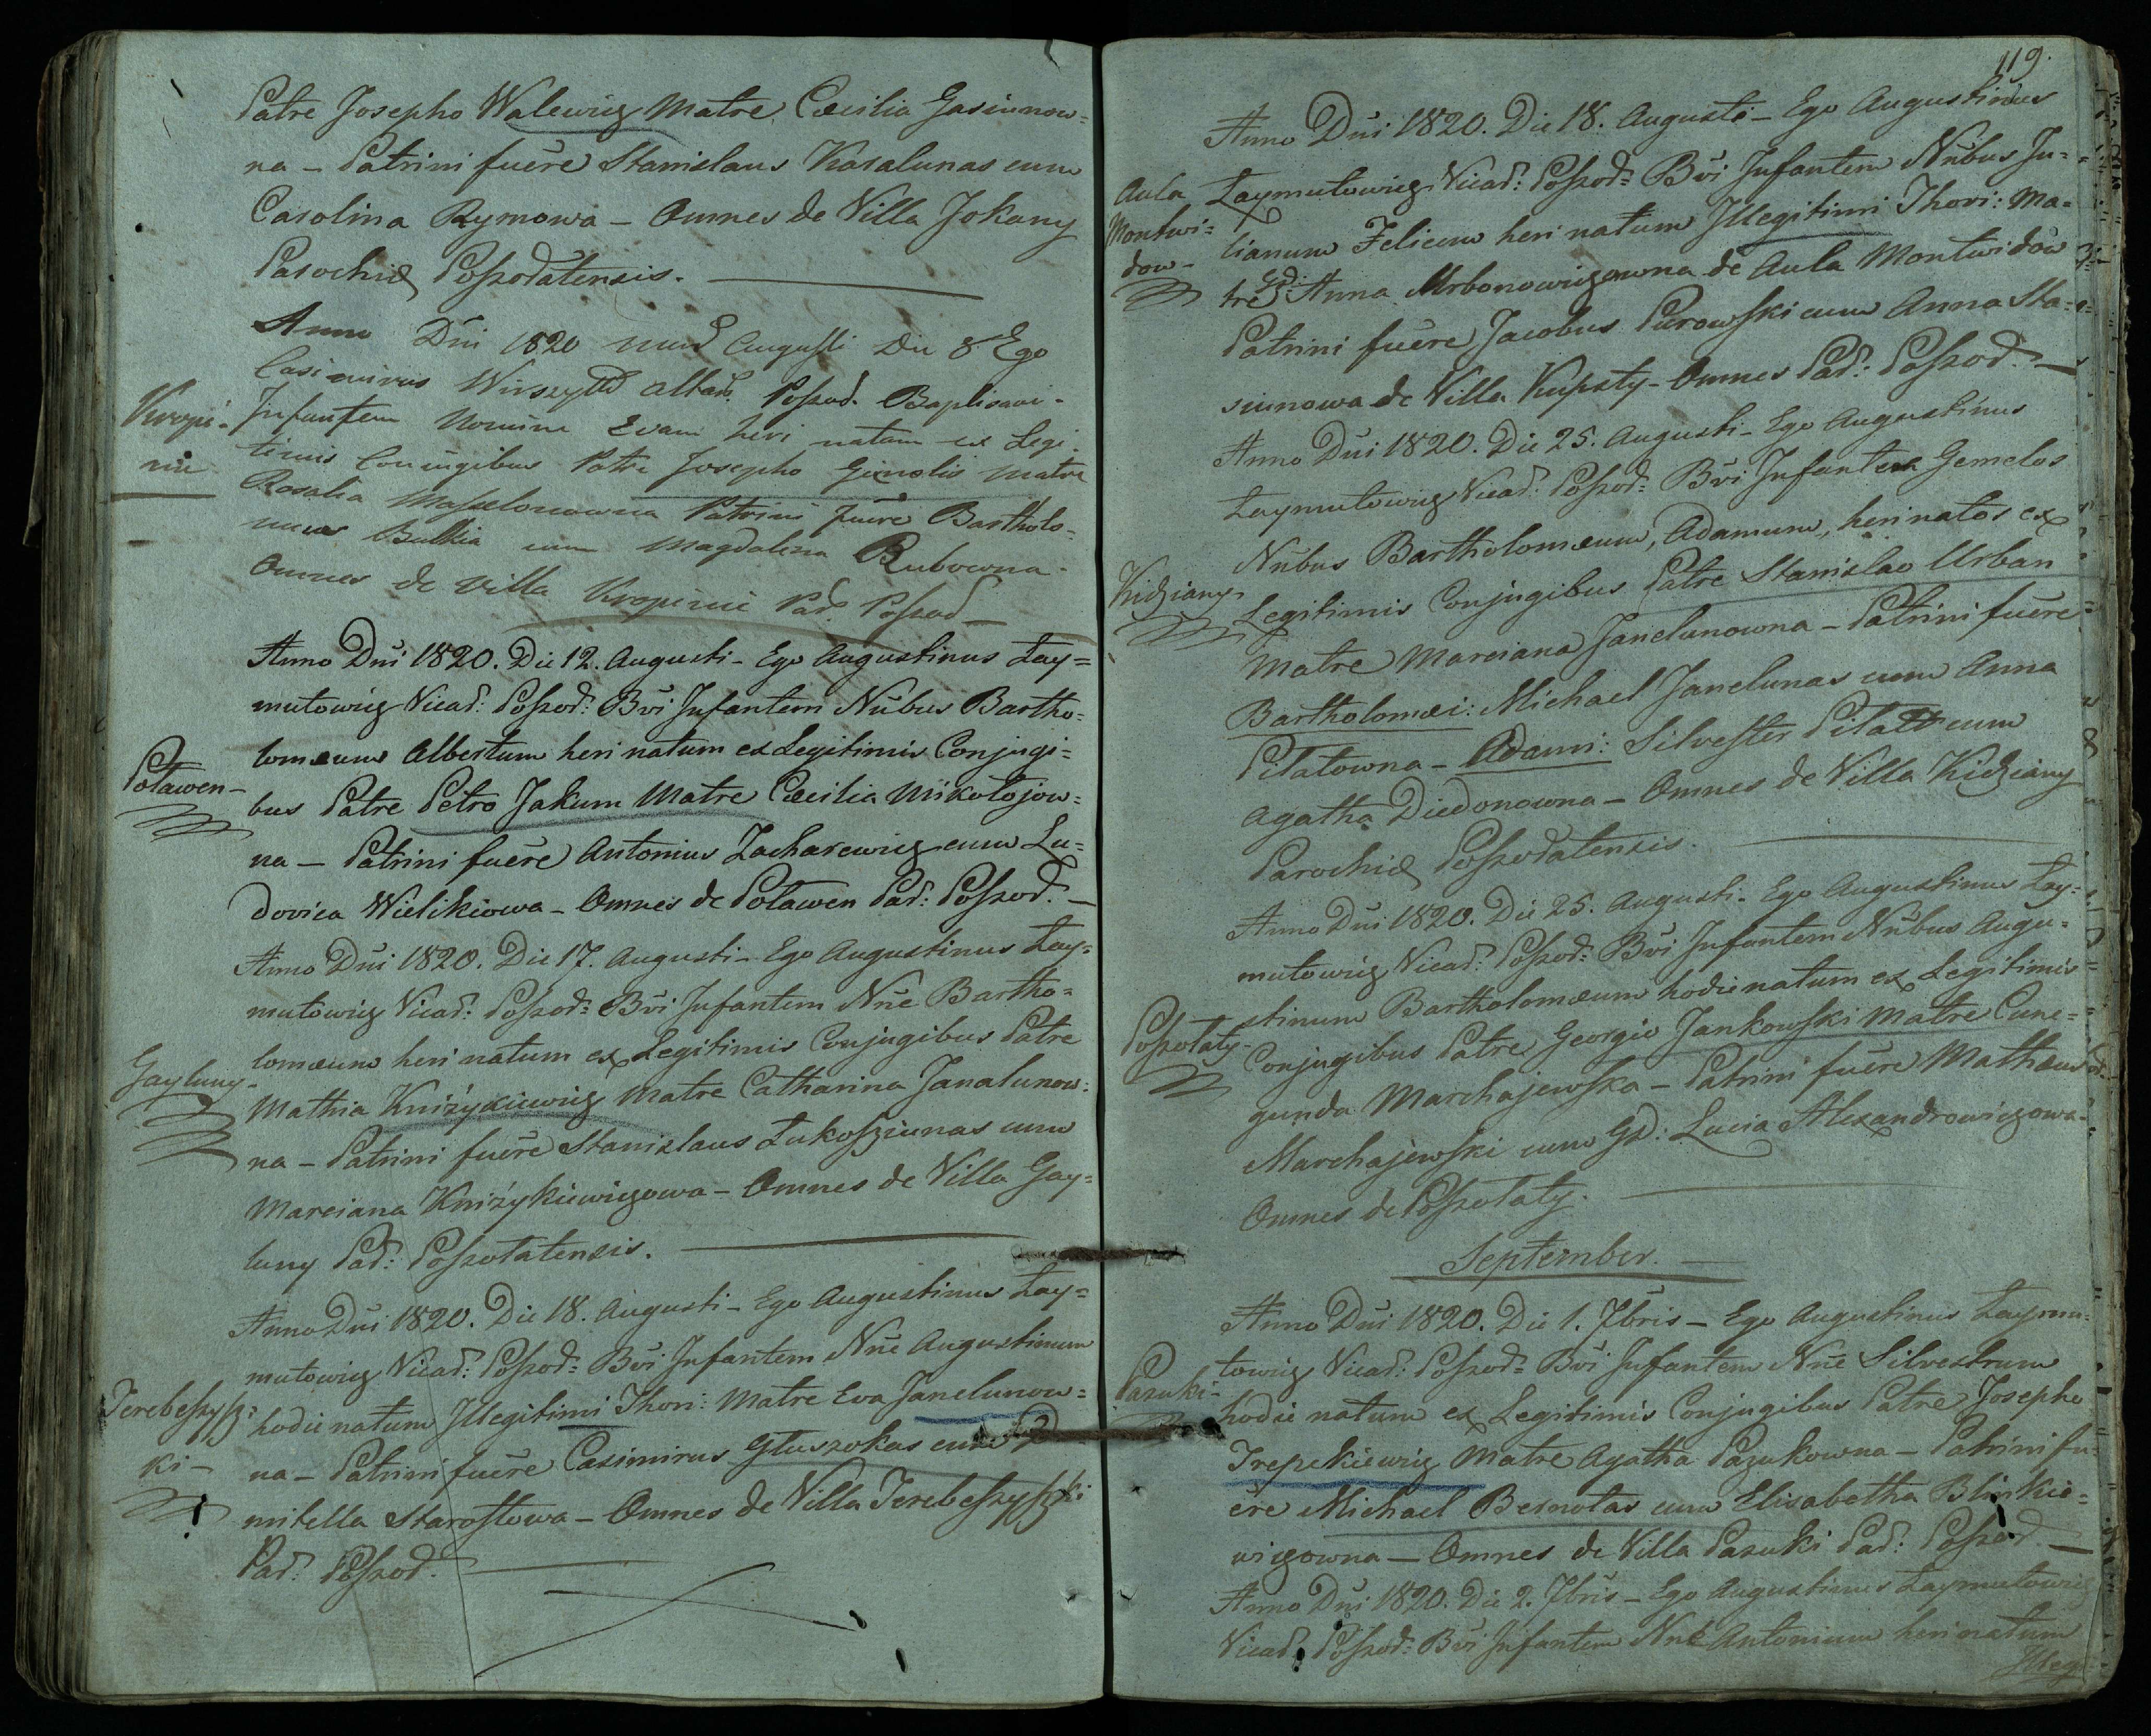 Patre Josepho Walewicz Matre Cæcilia Gasiunow=
na – Patrini fuēre Stanislaus Kasalunas cum
Carolina Rymowa – Omnes de Villa Jokany
Parochiæ Poszołatensis.
Anno Dn̄i 1820 Augusti Die 8 Ego
Casimirus Wirszyłło Altar. Poszoł. Baptisavi
Kropi-
nie
Infantem Nomine Evam heri natam ex Legi-
timis Conjugibus Patre Josepho Ginolis Matre
Rosalia Patrini fuēre Bartholo-
meus Bulkia cum Magdalena Rubowna
Omnes de Villa Kropinie Par. Poszoł
Anno Dn̄i 1820. Die 12. Augusti – Ego Augustinus Łay=
mutowicz Vicar: Poszoł: Bvi Infantem Nn̄bus Bartho=
lomæum Albertum heri natum ex Legitimis Conjugi=
Poławen–
bus Patre Petro Jakum Matre Cæcilia Mikołojow=
na – Patrini fuēre Antonius Zacharewicz cum Lu=
dovica Wielikiowa – Omnes de Poławen Par: Poszoł. –
Anno Dn̄i 1820. Die 17. Augusti – Ego Augustinus Łay=
mutowicz Vicar: Poszoł: Bvi Infantem Nn̄e Bartho=
lomæum heri natum ex Legitimis Conjugibus Patre
Gayluny-
Mathia Kniżykiewicz Matre Catharina Janalunow=
na – Patrini fuēre Stanislaus Łukosziunas cum
Marciana Kniżykiewiczowa – Omnes de Villa Gay=
luny Par: Poszołatensis.
Anno Dn̄i 1820. Die 18. Augusti – Ego Augustinus Łay=
mutowicz Vicar: Poszoł: Bvi Infantem Nn̄e Augustinum
Terebeszysz=
ki –
hodie natum Illegitimi Thori: Matre Eva Janelunow=
na – Patrini fuēre Casimirus Głuszokas cum Do
mitella Starostowa – Omnes de Villa Terebeszyszki
Par: Poszoł.
119.
Anno Dn̄i 1820. Die 18. Augusti – Ego Augustinus
Aula
Montwi=
dow–
Łaymutowicz Vicar: Poszoł: Bvi Infantem Nn̄bus Ju=
lianum Felicem heri natum Illegitimi Thori: Ma=
tre Gd: Anna Urbonowiczowna de Aula Montwidow
Patrini fuēre Jacobus Purowski cum Anna Sta=
siunowa de Villa Kupsty – Omnes Par: Poszoł. –
Anno Dn̄i 1820. Die 25. Augusti – Ego Augustinus
Łaymutowicz Vicar: Poszoł: Bvi Infantes Gemelos
Nn̄bus Bartholomæum, Adamum, heri natos ex
Kidziany-
Legitimis Conjugibus Patre Stanislao Urban
Matre Marciana Janelunowna – Patrini fuēre
Bartholomæi: Michael Janelunas cum Anna
Pilatowna – Adami: Silvester Pilatt cum
Agatha Diedonowna – Omnes de Villa Kidziany
Parochiæ Poszołatensis.
Anno Dn̄i 1820. Die 25. Augusti – Ego Augustinus Łay=
mutowicz Vicar: Poszoł: Bvi Infantem Nn̄bus Augu=
stinum Bartholomæum hodie natum ex Legitimis
Poszołaty-
Conjugibus Patre Georgio Jankowski Matre Cune=
gunda Marchajewska – Patrini fuēre Mathæus
Marchajewski cum Gd: Lucia Alexandrowiczowa
Omnes de Poszołaty.
September.
Anno Dn̄i 1820. Die 1. 7bris – Ego Augustinus Łaymu=
towicz Vicar: Poszoł: Bvi Infantem Nn̄e Silvestrum
Pazuki-
hodie natum ex Legitimis Conjugibus Patre Josepho
Trepekiewicz Matre Agatha Pazukowna – Patrini fu=
ēre Michael Bernotas cum Elisabetha Blinkie=
wiczowna – Omnes de Villa Pazuki Par: Poszoł. –
Anno Dn̄i 1820. Die 2. 7bris – Ego Augustinus Łaymutowicz
Vicar: Poszoł: Bvi Infantem Nn̄e Antonium heri natum
Illeg